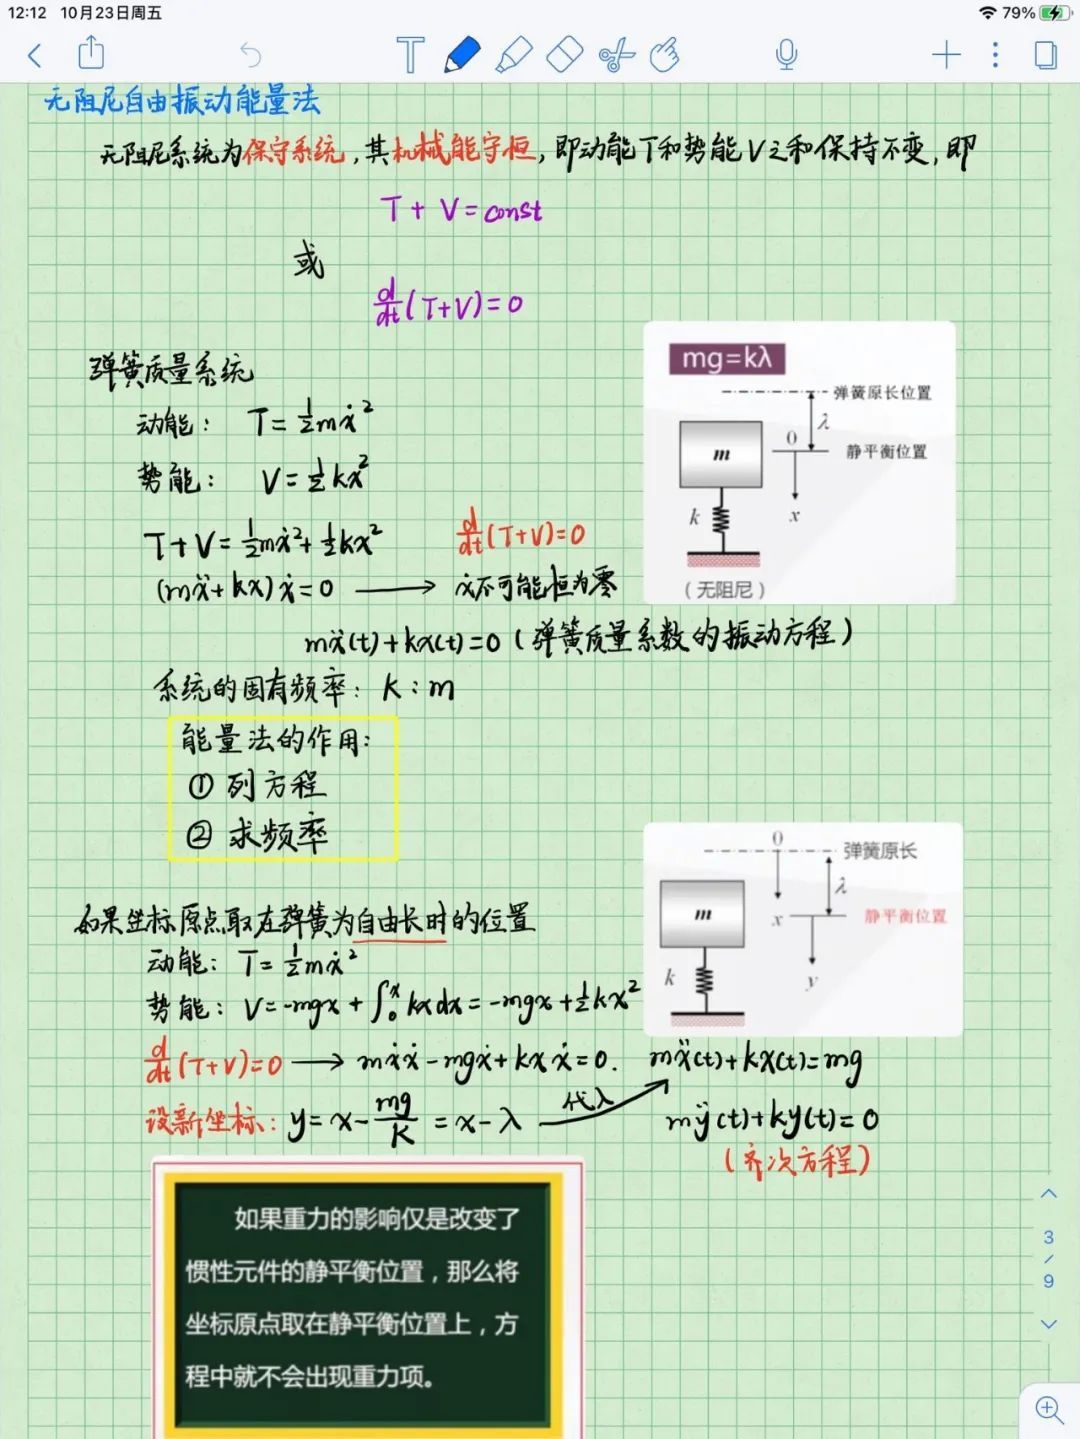 12:12 10月23日周五
79%
T
无阻尼自由振动能量法
无阻尼系统为保守系统,其机械能守恒,即动能T和势能V之和保持不变,即
T + V = const
或
d/dt(T+V)=0
弹簧质量系统
动能: T=½mẋ²
势能: V=½kx²
T+V=½mẋ²+½kx² d/dt(T+V)=0
(mẍ+kx)ẋ=0 → ẋ不可能恒为零
mẍ(t)+kx(t)=0(弹簧质量系数的振动方程)
系统的固有频率: K:m
mg=kλ
弹簧原长位置
λ
0
静平衡位置
m
k
x
(无阻尼)
能量法的作用:
① 列方程
② 求频率
0
弹簧原长
λ
m
x
静平衡位置
k
y
如果坐标原点取在弹簧为自由长时的位置
动能: T=½mẋ²
势能: V=-mgx+∫₀ˣkxdx=-mgx+½kx²
d/dt(T+V)=0 → mẋẋ-mgẋ+kxẋ=0. mẍ(t)+kx(t)=mg
设新坐标: y=x-mg/K=x-λ 代入 mÿ(t)+ky(t)=0
(齐次方程)
如果重力的影响仅是改变了
惯性元件的静平衡位置,那么将
坐标原点取在静平衡位置上,方
程中就不会出现重力项。
3
/
9